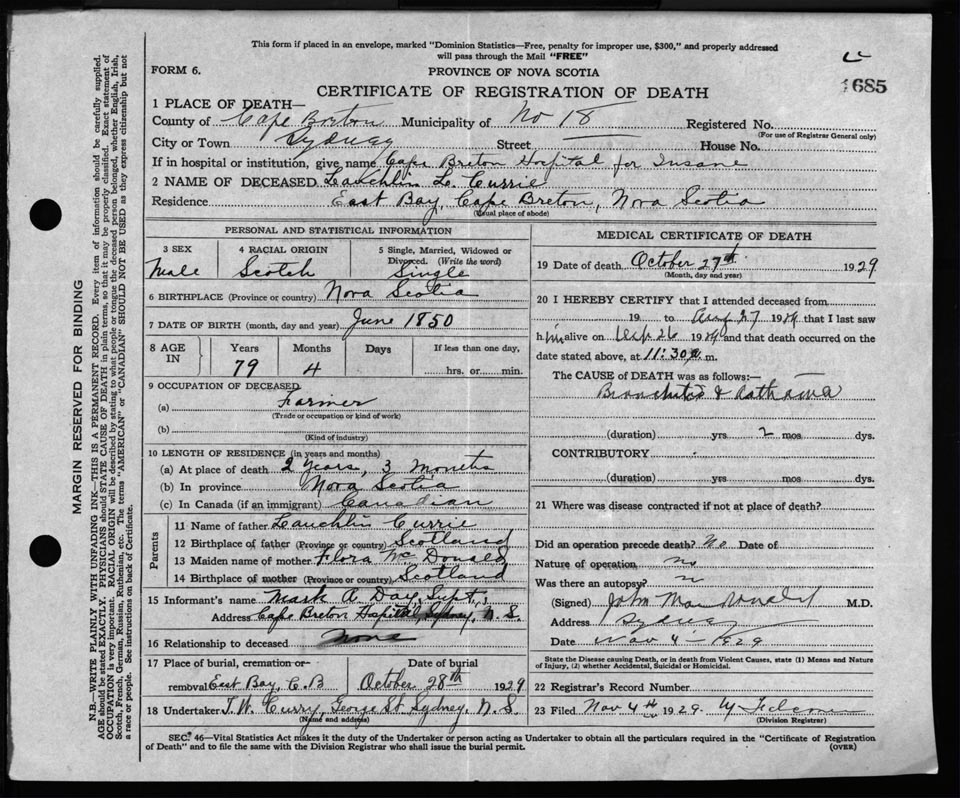 This form if placed in an envelope, marked "Dominion Statistics—Free, penalty for improper use, $300," and properly addressed
will pass through the Mail "FREE"
FORM 6.
PROVINCE OF NOVA SCOTIA
1685
CERTIFICATE OF REGISTRATION OF DEATH
1 PLACE OF DEATH—
County of Cape Breton Municipality of No 18 Registered No.
(For use of Registrar General only)
City or Town Sydney Street House No.
If in hospital or institution, give name Cape Breton Hospital for Insane
2 NAME OF DECEASED Lauchlin L. Currie
Residence East Bay, Cape Breton, Nova Scotia
(Usual place of abode)
PERSONAL AND STATISTICAL INFORMATION
3 SEX
Male
4 RACIAL ORIGIN
Scotch
5 Single, Married, Widowed or
Divorced. (Write the word)
Single
6 BIRTHPLACE (Province or country) Nova Scotia
7 DATE OF BIRTH (month, day and year) June 1850
8 AGE
IN
Years
79
Months
4
Days
If less than one day,
hrs. or min.
9 OCCUPATION OF DECEASED
(a) Farmer
(Trade or occupation or kind of work)
(b)
(Kind of industry)
10 LENGTH OF RESIDENCE (in years and months)
(a) At place of death 2 years, 3 months
(b) In province Nova Scotia
(c) In Canada (if an immigrant) Canadian
Parents
11 Name of father Lauchlin Currie
12 Birthplace of father (Province or country) Scotland
13 Maiden name of mother Flora McDonald
14 Birthplace of mother (Province or country) Scotland
15 Informant's name Mark A. Day, Supt,
Address Cape Breton Hospital, Sydney, N. S.
16 Relationship to deceased None
17 Place of burial, cremation or Date of burial
removal East Bay, C.B October 28th 1929
18 Undertaker T. W. Curry, George St Sydney, N. S.
(Name and address)
MEDICAL CERTIFICATE OF DEATH
19 Date of death October 27th 1929
(Month, day and year)
20 I HEREBY CERTIFY that I attended deceased from
19 to Aug 27 19 that I last saw
h im alive on 26 19 and that death occurred on the
date stated above, at 11:30 m.
The CAUSE of DEATH was as follows:—
Bronchitis &
(duration) yrs 2 mos dys.
CONTRIBUTORY
(duration) yrs. mos. dys.
21 Where was disease contracted if not at place of death?
Did an operation precede death? No Date of
Nature of operation no
Was there an autopsy? n
(Signed) John MacDonald M.D.
Address Sydney
Date Nov 4 1929
State the Disease causing Death, or in death from Violent Causes, state (1) Means and Nature
of Injury, (2) whether Accidental, Suicidal or Homicidal.
22 Registrar's Record Number
23 Filed Nov 4th 1929
(Division Registrar)
SEC. 46—Vital Statistics Act makes it the duty of the Undertaker or person acting as Undertaker to obtain all the particulars required in the "Certificate of Registration
of Death" and to file the same with the Division Registrar who shall issue the burial permit.
(OVER)
MARGIN RESERVED FOR BINDING
N.B.—WRITE PLAINLY WITH UNFADING INK—THIS IS A PERMANENT RECORD. Every item of information should be carefully supplied.
AGE should be stated EXACTLY. PHYSICIANS should STATE CAUSE OF DEATH in plain terms, so that it may be properly classified. Exact statement of
OCCUPATION is very important. RACIAL ORIGIN will be described by stating to what people or tongue the deceased person belonged, whether English, Irish,
Scotch, French, German, Russian, Ruthenian, etc. The terms "AMERICAN" or "CANADIAN" SHOULD NOT BE USED as they express citizenship but not
a race or people. See instructions on back of Certificate.